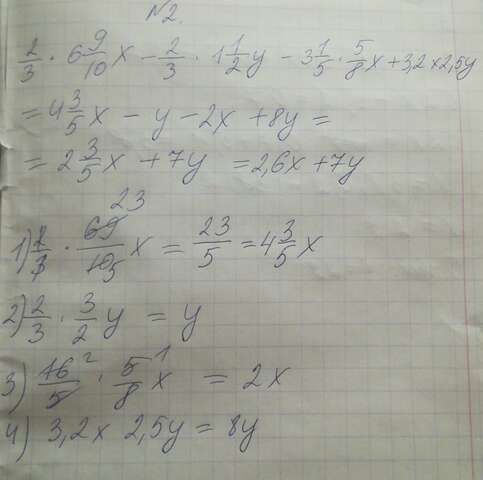 №2.
2/3 · 6 9/10 x - 2/3 · 1 1/2 y - 3 1/5 · 5/8 x + 3,2 × 2,5y
= 4 3/5 x - y - 2x + 8y =
= 2 3/5 x + 7y = 2,6x + 7y
1) 2/3 · 69/10 x = 23/5 = 4 3/5 x
2) 2/3 · 3/2 y = y
3) 16/5 · 5/8 x = 2x
4) 3,2 × 2,5y = 8y